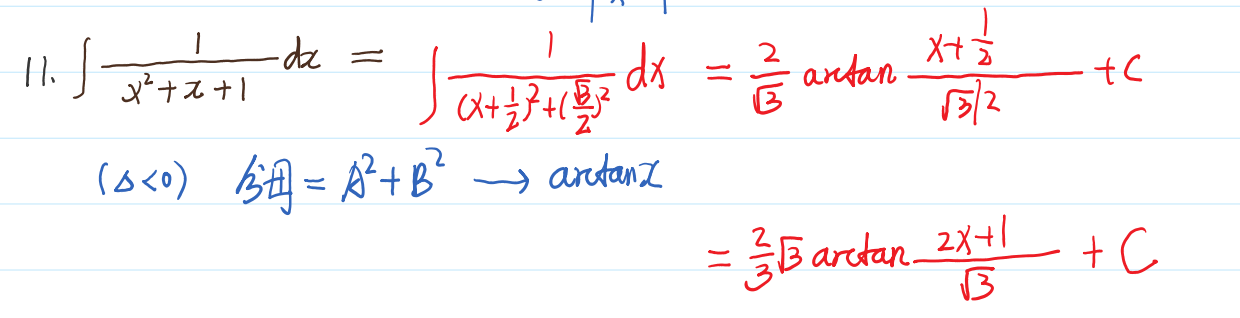 11. ∫ 1/(x²+x+1) dx = ∫ 1/((x+1/2)²+(√3/2)²) dx = 2/√3 arctan (x+1/2)/(√3/2) + C
(Δ<0) 分母 = A²+B² → arctanx
= 2/3 √3 arctan (2x+1)/√3 + C